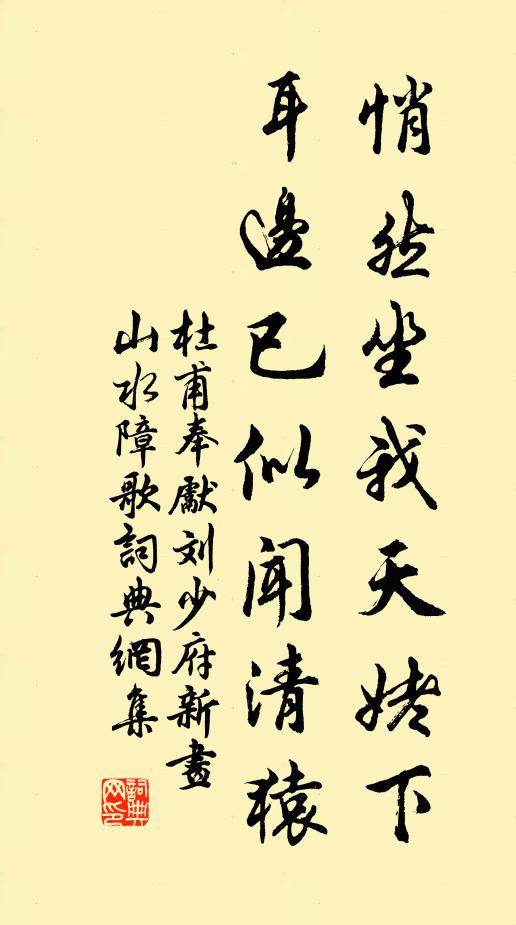 悄然坐我天姥下
耳邊已似闻清猿
杜甫奉獻刘少府新畫
山水障歌詞典網集
詞典网印